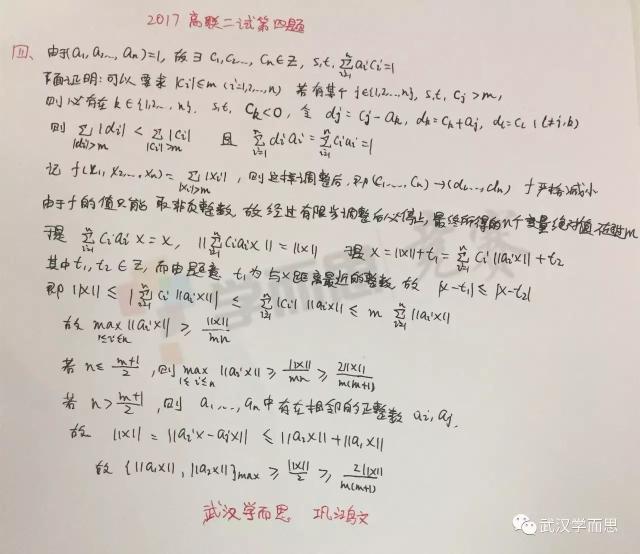 2017 高联二试第四题
四、由于(a₁,a₂,…,aₙ)=1, 故∃ c₁,c₂…, cₙ∈Z, s.t. ∑ᵢ₌₁ⁿ aᵢcᵢ=1
下面证明:可以要求 |cᵢ|≤m (i=1,2,…,n) 若有某个 j∈{1,2,…,n}, s.t. cⱼ>m,
则必存在 k∈{1,2,…n}, s.t. cₖ<0, 令 dⱼ=cⱼ-aₖ, dₖ=cₖ+aⱼ, dₗ=cₗ (l≠j,k)
则 ∑_{|dᵢ|>m} |dᵢ| < ∑_{|cᵢ|>m} |cᵢ| 且 ∑ᵢ₌₁ⁿ dᵢaᵢ=∑ᵢ₌₁ⁿ cᵢaᵢ=1
记 f(x₁,x₂,…,xₙ)=∑_{|xᵢ|>m} |xᵢ|, 则这样调整后, 即(c₁,…,cₙ)→(d₁,…,dₙ) f严格减小
由于f的值只能取非负整数, 故经过有限步调整后必停止, 最终所得的n个变量绝对值不超m
于是 ∑ᵢ₌₁ⁿ cᵢaᵢx=x, ||∑ᵢ₌₁ⁿ cᵢaᵢx||=||x|| 于是 x=||x||+t₁=∑ᵢ₌₁ⁿ cᵢ||aᵢx||+t₂
其中t₁,t₂∈Z, 而由题意 t₁为与x距离最近的整数, 故 |x-t₁|≤|x-t₂|
即 ||x||≤|∑ᵢ₌₁ⁿ cᵢ||aᵢx|||≤∑ᵢ₌₁ⁿ|cᵢ| ||aᵢx||≤m ∑ᵢ₌₁ⁿ||aᵢx||
故 max_{1≤i≤n} ||aᵢx||≥||x||/mn
若 n≤(m+1)/2, 则 max_{1≤i≤n} ||aᵢx||≥||x||/mn≥2||x||/m(m+1)
若 n>(m+1)/2, 则 a₁,…,aₙ中存在相邻的正整数 aᵢ,aⱼ.
故 ||x||=||aᵢx-aⱼx||≤||a₂x||+||a₁x||
故 {||a₁x||, ||a₂x||}max≥||x||/2≥2||x||/m(m+1)
武汉学而思
学而思竞赛
武汉学而思